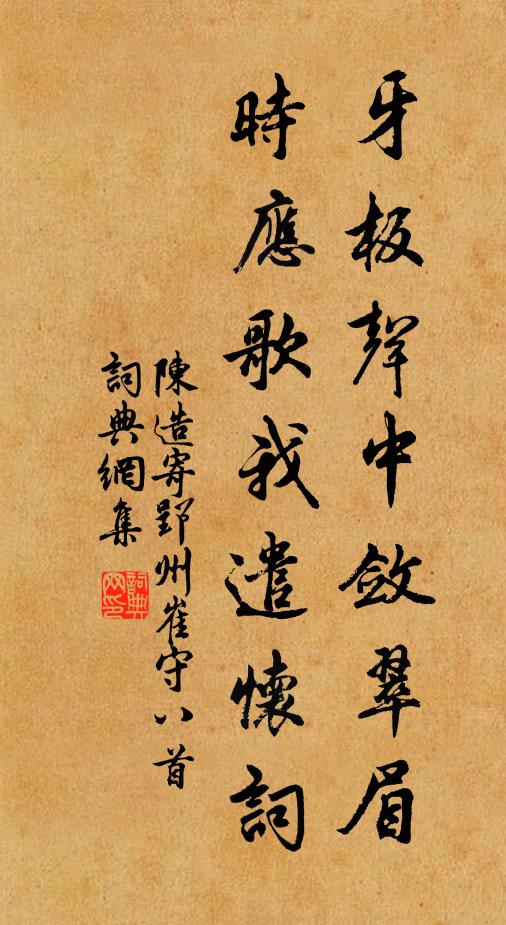 牙板聲中斂翠眉
時應歌我遣懷詞
陳造寄郢州崔守八首
詞典網集
詞典网印